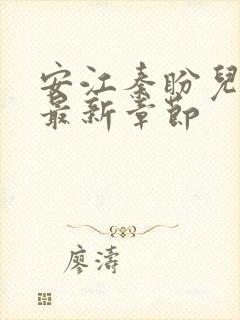 安江秦盼兒
最新章節
廖濤